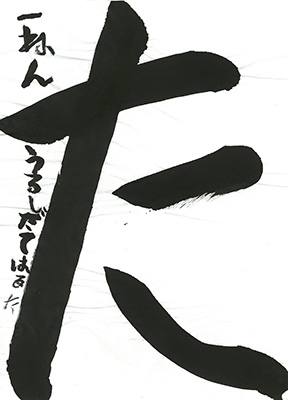 た
一ねん
うるしだてはる